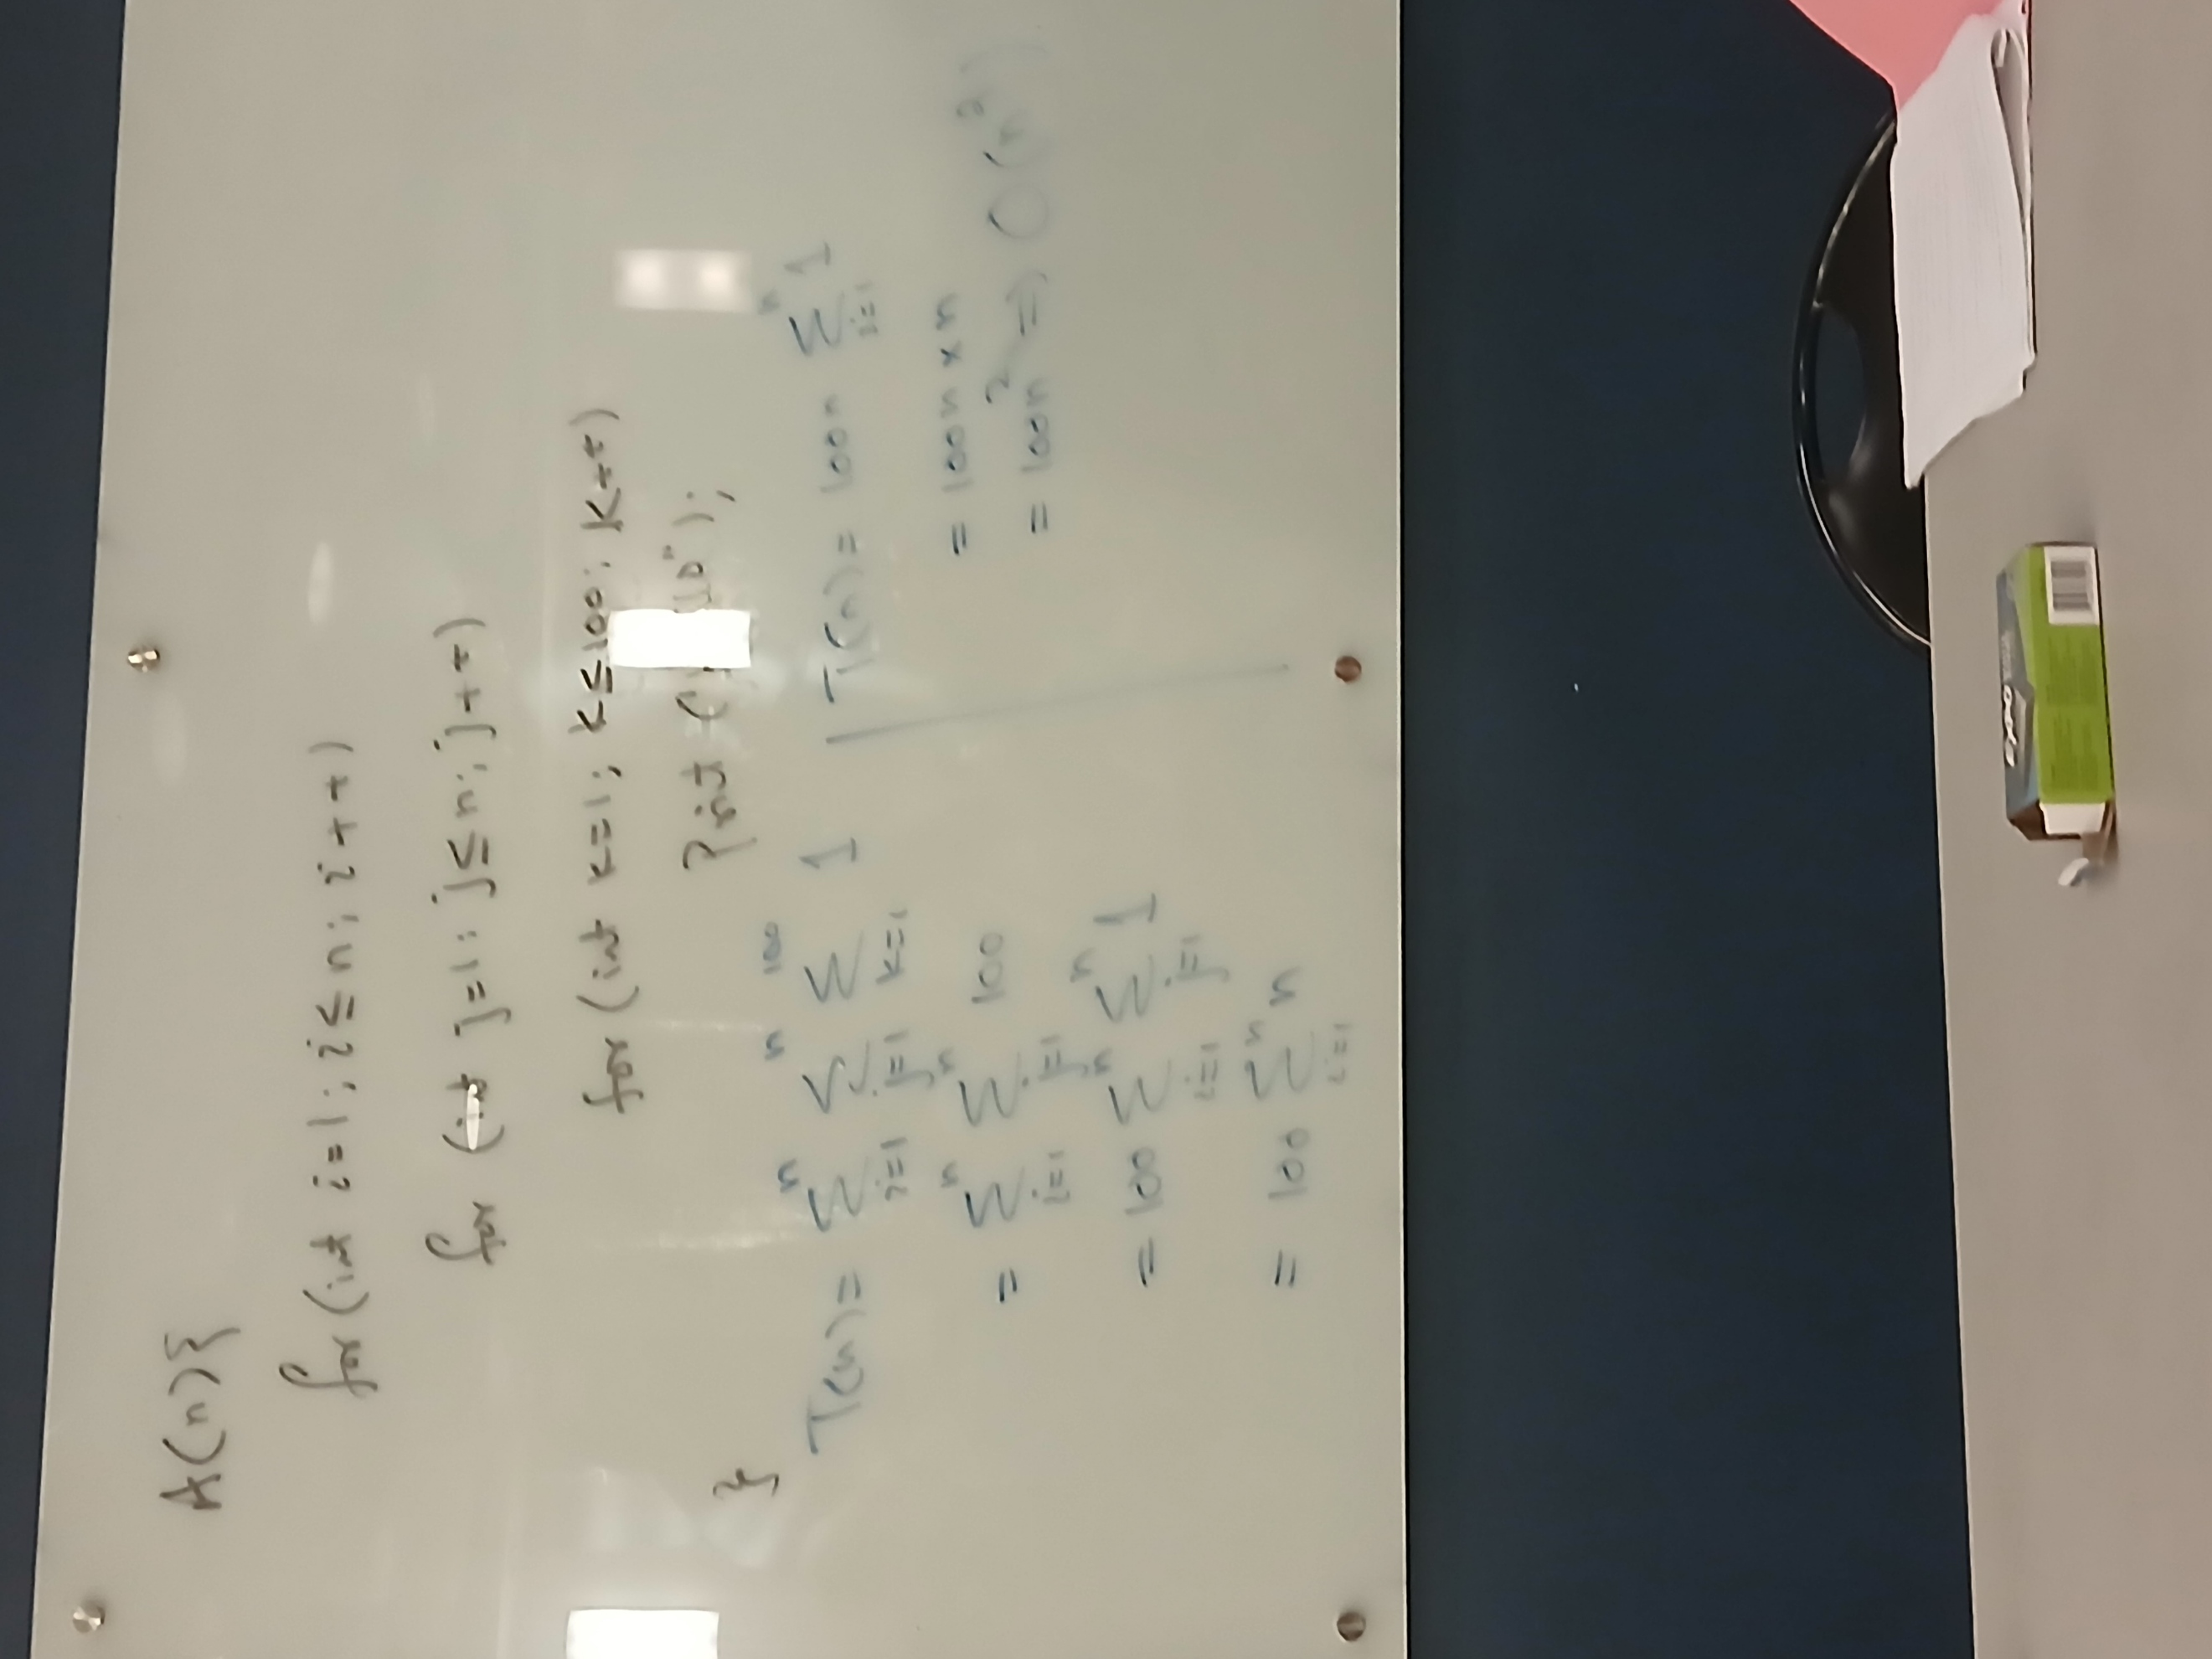 A(n){
for(int i=1; i≤n; i++)
for (int j=1; j≤n; j++)
for(int k=1; k≤100; k++)
Print ( );
}
T(n)= ∑_{i=1}^{n} ∑_{j=1}^{n} ∑_{k=1}^{100} 1
= ∑_{i=1}^{n} ∑_{j=1}^{n} 100
= 100 ∑_{i=1}^{n} ∑_{j=1}^{n} 1
= 100 ∑_{i=1}^{n} n
T(n)= 100n ∑_{i=1}^{n} 1
= 100n × n
= 100n² ⇒ O(n²)
expo